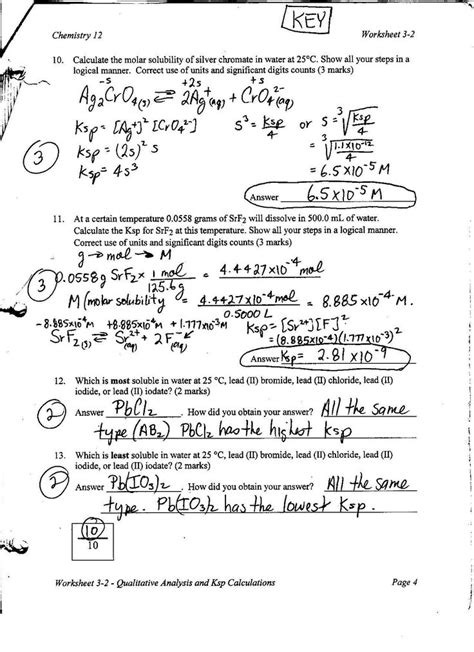 KEY
Chemistry 12 Worksheet 3-2
10. Calculate the molar solubility of silver chromate in water at 25°C. Show all your steps in a
logical manner. Correct use of units and significant digits counts (3 marks)
-s +2s +s
Ag₂CrO₄(s) ⇌ 2Ag⁺(aq) + CrO₄²⁻(aq)
Ksp = [Ag⁺]² [CrO₄²⁻] s³ = Ksp/4 or s = ³√(Ksp/4)
3 Ksp = (2s)² s = ³√(1.1x10⁻¹²/4)
Ksp = 4s³ = 6.5x10⁻⁵ M
Answer 6.5x10⁻⁵ M
11. At a certain temperature 0.0558 grams of SrF₂ will dissolve in 500.0 mL of water.
Calculate the Ksp for SrF₂ at this temperature. Show all your steps in a logical manner.
Correct use of units and significant digits counts (3 marks)
g → mol → M
3 0.0558g SrF₂ x 1 mol/125.6g = 4.4427x10⁻⁴ mol
M (molar solubility = 4.4427x10⁻⁴ mol/0.5000 L = 8.885x10⁻⁴ M.
-8.885x10⁻⁴M +8.885x10⁻⁴M +1.777x10⁻³M Ksp = [Sr²⁺][F⁻]²
SrF₂(s) ⇌ Sr²⁺(aq) + 2F⁻(aq) = (8.885x10⁻⁴)(1.777x10⁻³)²
Answer Ksp = 2.81 x10⁻⁹
12. Which is most soluble in water at 25 °C, lead (II) bromide, lead (II) chloride, lead (II)
iodide, or lead (II) iodate? (2 marks)
2 Answer PbCl₂ . How did you obtain your answer? All the same
type (AB₂) PbCl₂ has the highest Ksp
13. Which is least soluble in water at 25 °C, lead (II) bromide, lead (II) chloride, lead (II)
iodide, or lead (II) iodate? (2 marks)
2 Answer Pb(IO₃)₂ . How did you obtain your answer? All the same
type. Pb(IO₃)₂ has the lowest Ksp.
10
10
Worksheet 3-2 - Qualitative Analysis and Ksp Calculations Page 4